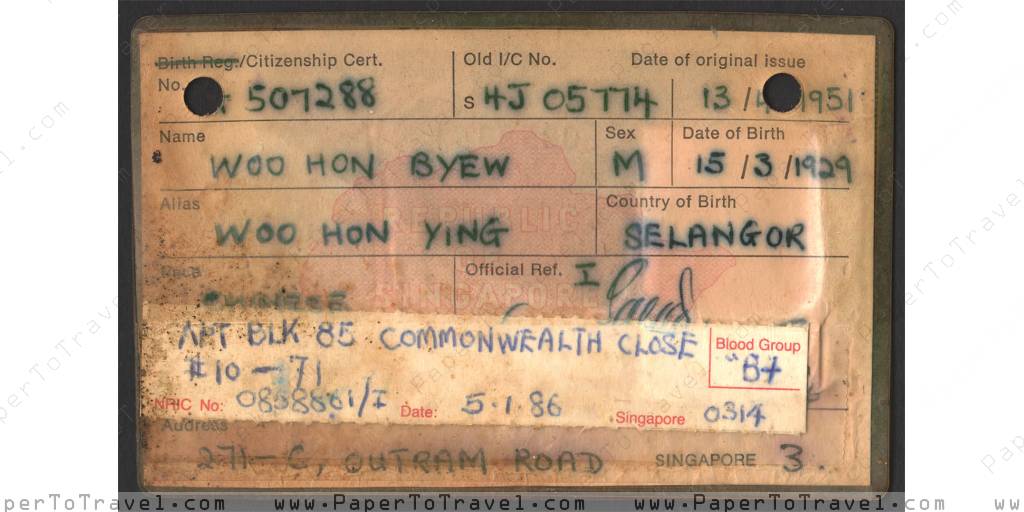 Birth Reg./Citizenship Cert. Old I/C No. Date of original issue
No. 507288 S 4J 05774 13 / 4 1951
Name Sex Date of Birth
WOO HON BYEW M 15 / 3 / 1929
Alias Country of Birth
WOO HON YING SELANGOR
Race Official Ref. I
CHINESE
REPUBLIC
SINGAPORE
APT BLK 85 COMMONWEALTH CLOSE
#10-71
Blood Group
"B+
NRIC No: /I Date: 5.1.86 Singapore 0314
Address
271-C, OUTRAM ROAD SINGAPORE 3.
www.PaperToTravel.com www.PaperToTravel.com www.PaperToTravel.com